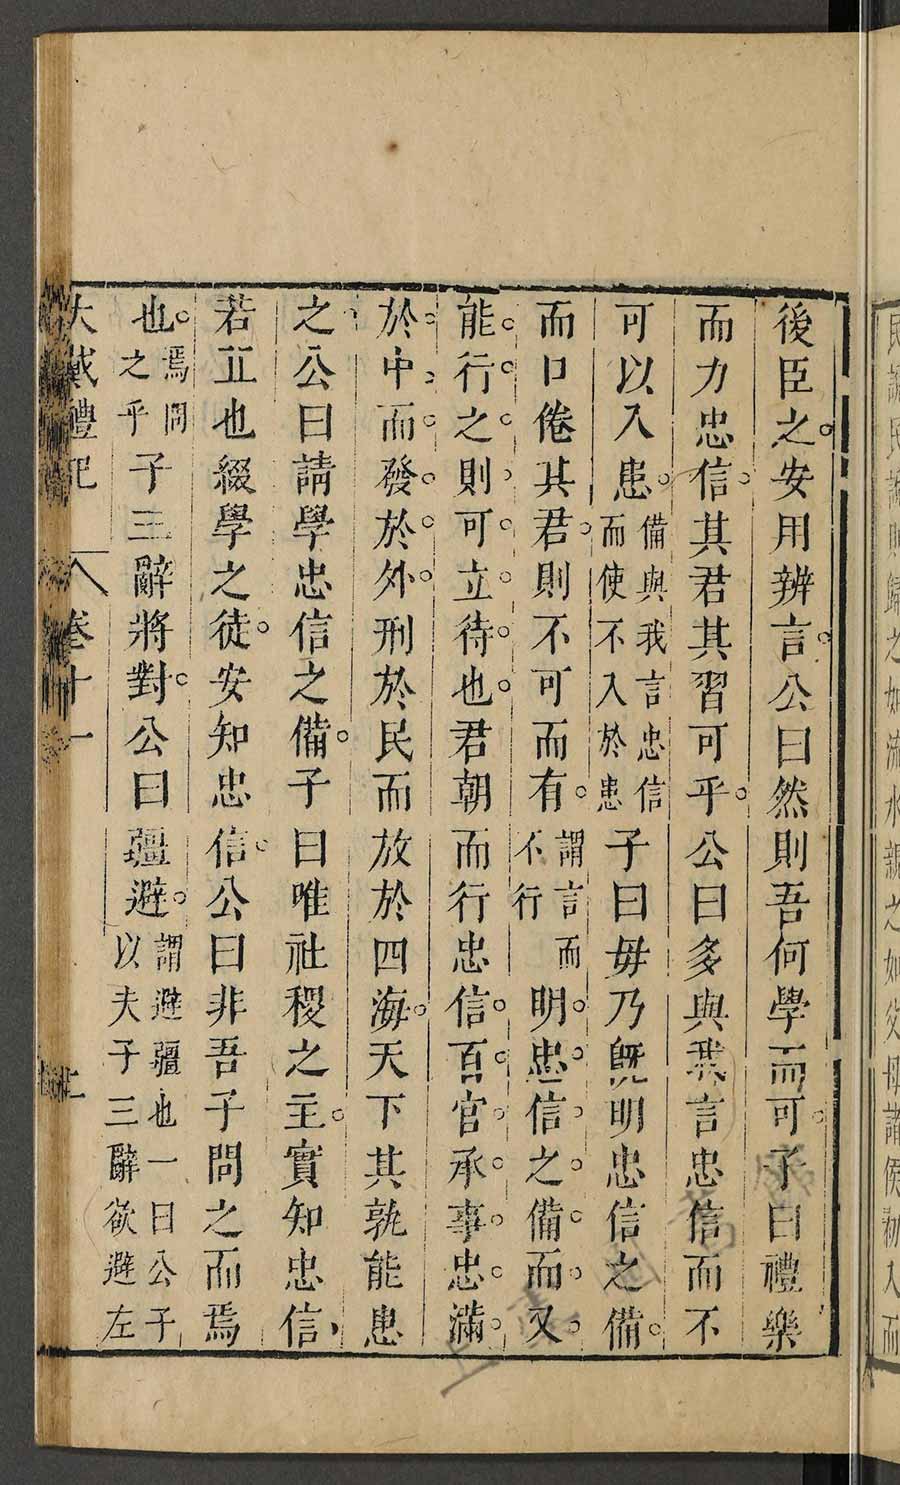 後臣之安用辨言公曰然則吾何學而可子曰禮樂
而力忠信其君其習可乎公曰多與我言忠信而不
可以入患備與我言忠信而使不入於患子曰毋乃既明忠信之備
而口倦其君則不可而有謂言而不行明忠信之備而又
能行之則可立待也君朝而行忠信百官承事忠滿
於中而發於外刑於民而放於四海天下其孰能患
之公曰請學忠信之備子曰唯社稷之主實知忠信
若丘也綴學之徒安知忠信公曰非吾子問之而焉
也焉問之乎子三辭將對公曰彊避謂避彊也一曰公子以夫子三辭欲避左
大戴禮記 卷十一